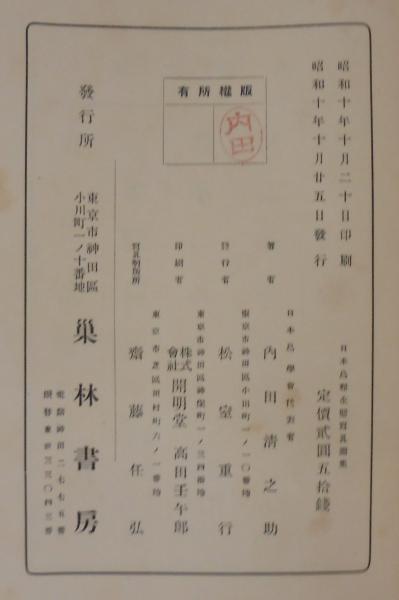 昭和十年十月二十日印刷
昭和十年十月廿五日發行
日本鳥類生態寫眞圖集
定價貳圓五拾錢
版權所有
內田
日本鳥學會代表者
著者 內田淸之助
東京市神田區小川町一ノ一〇番地
發行者 松室重行
東京市神田區神保町一ノ三四番地
印刷者 株式會社開明堂 高田壬午郎
東京市芝區田村町六ノ一番地
寫眞製版所 齋藤任弘
發行所
東京市神田區
小川町一ノ十番地
巢林書房
電話神田二七七五番